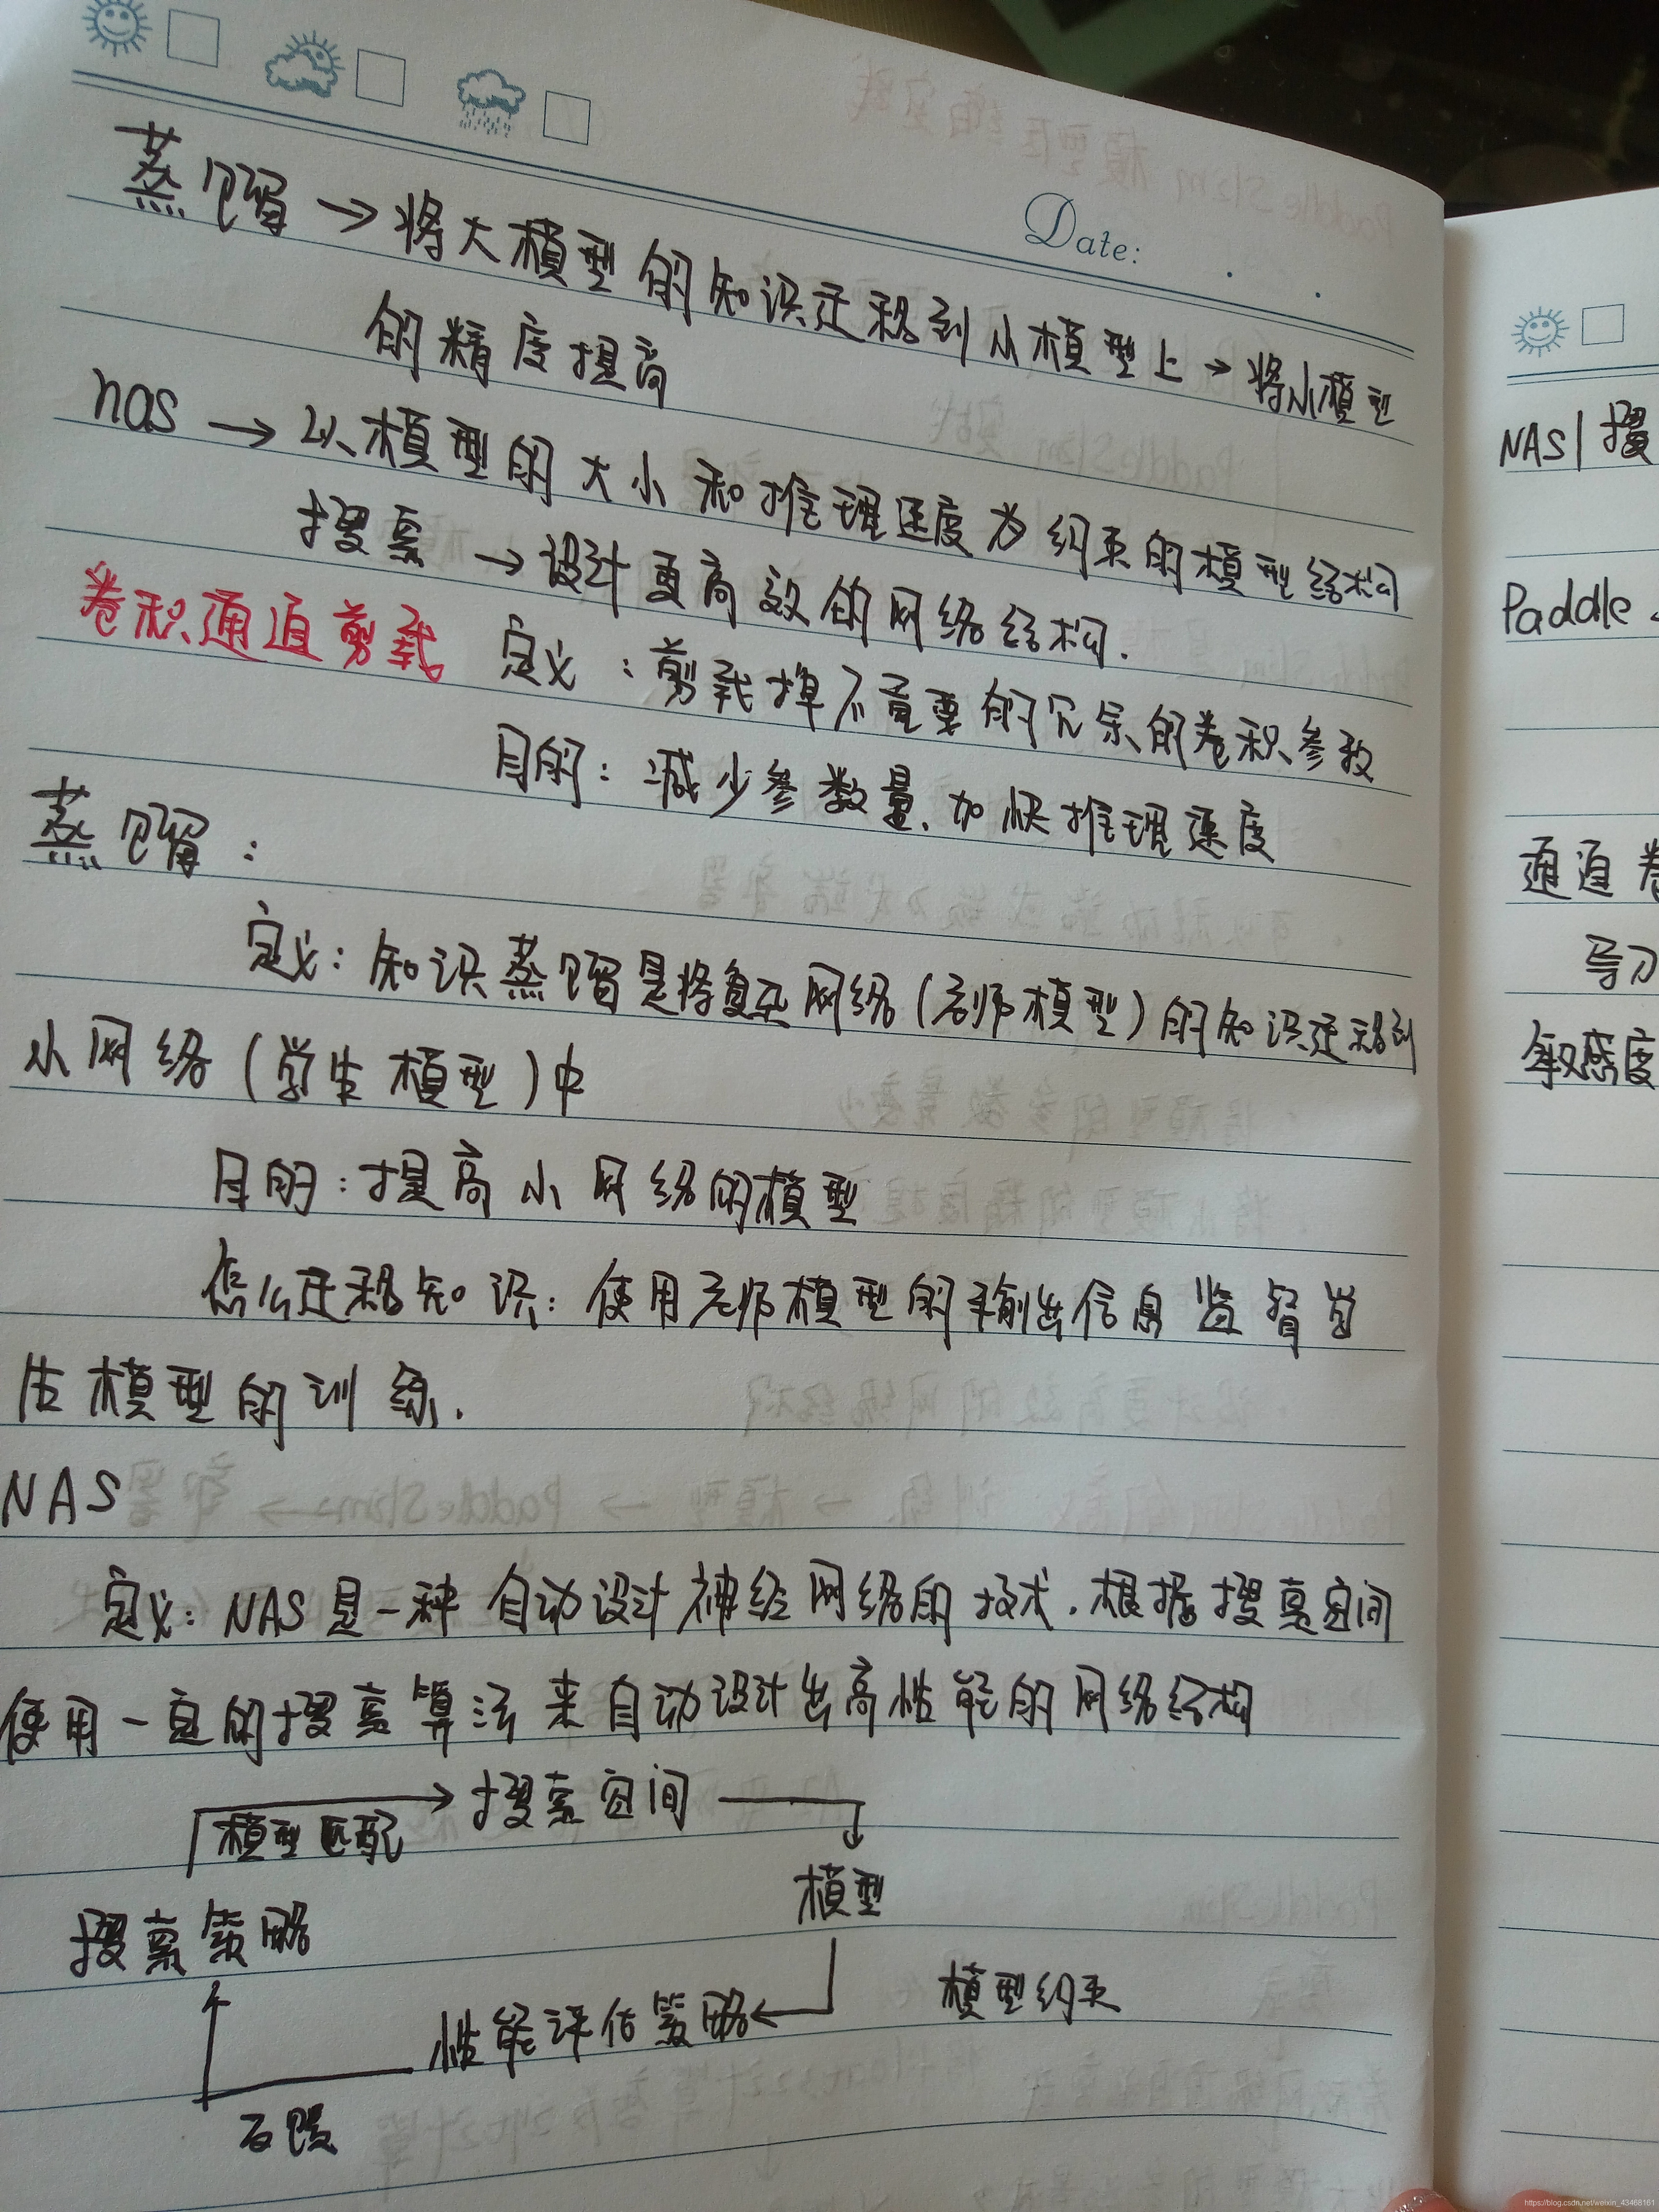 Date:
蒸馏 → 将大模型的知识迁移到小模型上 → 将小模型
的精度提高
nas → 以模型的大小和推理速度为约束的模型结构
搜索 → 设计更高效的网络结构.
卷积通道剪裁 定义:剪裁掉不重要的冗余的卷积参数
目的:减少参数量、加快推理速度
蒸馏:
定义:知识蒸馏是将复杂网络(老师模型)的知识迁移到
小网络(学生模型)中
目的:提高小网络的模型
怎么迁移知识:使用老师模型的输出信息监督学
生模型的训练.
NAS
定义:NAS是一种自动设计神经网络的技术.根据搜索空间
使用一定的搜索算法来自动设计出高性能的网络结构
搜索空间
模型匹配
模型
搜索策略
模型约束
性能评估策略
反馈
NAS| 搜
Paddle
通道卷
敏感度
https://blog.csdn.net/weixin_43468161